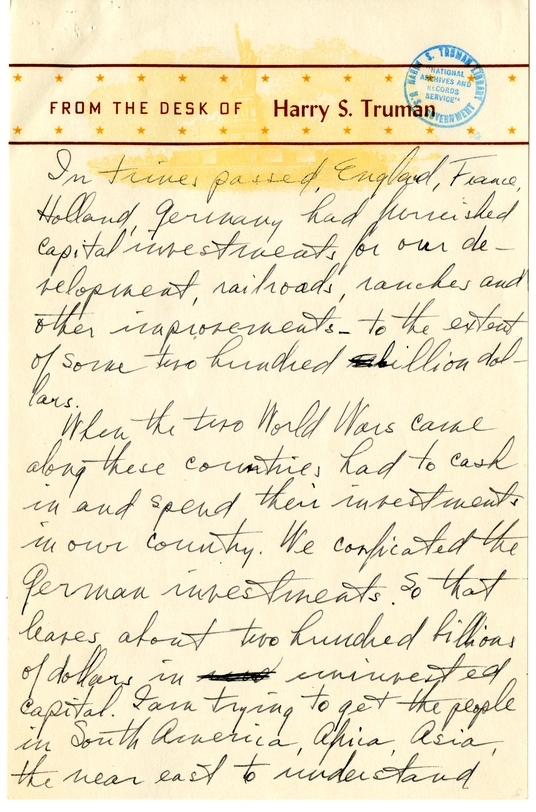 FROM THE DESK OF Harry S. Truman
HARRY S. TRUMAN LIBRARY
"NATIONAL
ARCHIVES AND
RECORDS
SERVICE"
U.S. GOVERNMENT
In times passed, England, France,
Holland, Germany had furnished
capital investments for our de-
velopment, railroads, ranches and
other improvements - to the extent
of some two hundred billion dol-
lars.
When the two World Wars came
along these countries had to cash
in and spend their investments
in our country. We conficated the
German investments. So that
leaves about two hundred billions
of dollars in uninvested
capital. I am trying to get the people
in South America, Africa, Asia,
the near east to understand